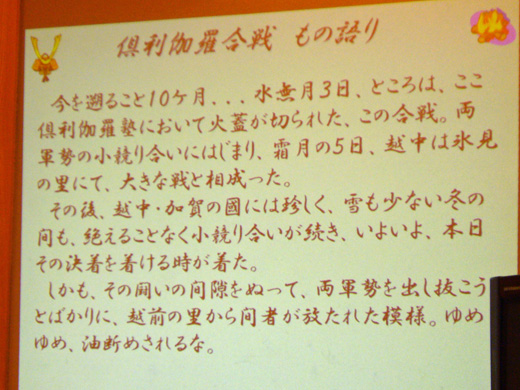 倶利伽羅合戦 もの語り
今を遡ること10ケ月...水無月3日、ところは、ここ
倶利伽羅塾において火蓋が切られた、この合戦。両
軍勢の小競り合いにはじまり、霜月の5日、越中は氷見
の里にて、大きな戦と相成った。
その後、越中・加賀の國には珍しく、雪も少ない冬の
間も、絶えることなく小競り合いが続き、いよいよ、本日
その決着を着ける時が着た。
しかも、その闘いの間隙をぬって、両軍勢を出し抜こう
とばかりに、越前の里から間者が放たれた模様。ゆめ
ゆめ、油断めされるな。